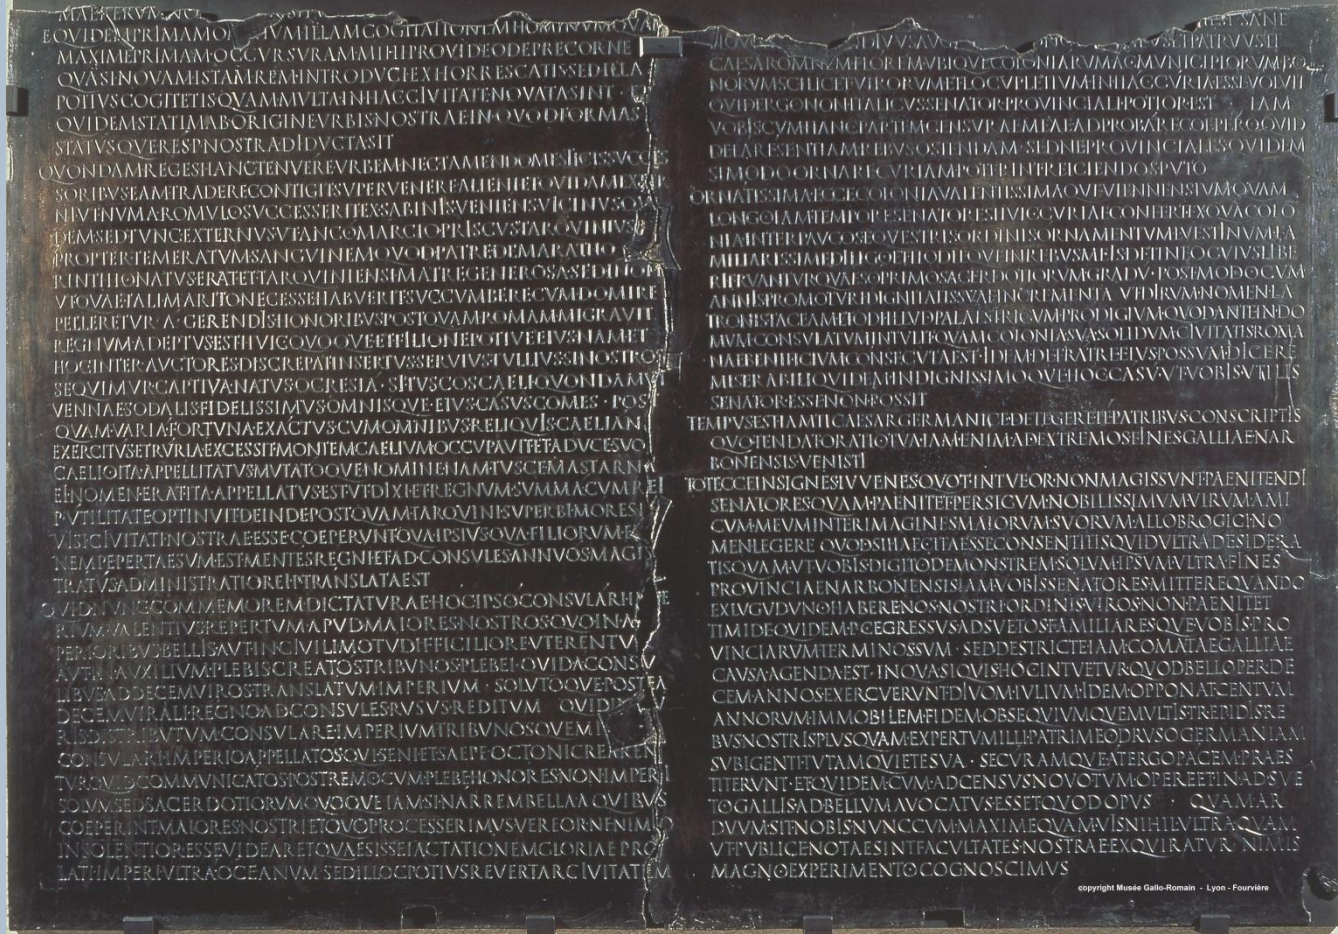 MAE RERVM NO
EQVIDEM PRIMAM OM IVM ILLAM COGITATIONEM HOMINVM QVAM
MAXIME PRIMAM OCCVRSVRAM MIHI PROVIDEO DEPRECOR NE
QVASI NOVAM ISTAM REM INTRODVCI EXHORRESCATIS SED ILLA
POTIVS COGITETIS QVAM MVLTA IN HAC CIVITATE NOVATA SINT ET
QVIDEM STATIM AB ORIGINE VRBIS NOSTRAE IN QVOD FORMAS
STATVSQVE RES P NOSTRA DIDVCTA SIT
QVONDAM REGES HANC TENVERE VRBEM NEC TAMEN DOMESTICIS SVCCES
SORIBVS EAM TRADERE CONTIGIT SVPERVENERE ALIENI ET QVIDAM EXTER
NI VT NVMA ROMVLO SVCCESSERIT EX SABINIS VENIENS VICINVS QVI
DEM SED TVNC EXTERNVS VT ANCO MARCIO PRISCVS TARQVINIVS
PROPTER TEMERATVM SANGVINEM QVOD PATRE DEMARATHO
RINTHIO NATVS ERAT ET TARQVINIENSI MATRE GENEROSA SED INOPI
VT QVAE TALI MARITO NECESSE HABVERIT SVCCVMBERE CVM DOMI RE
PELLERETVR A GERENDIS HONORIBVS POSTQVAM ROMAM MIGRAVIT
REGNVM ADEPTVS EST HVIC QVOQVE ET FILIO NEPOTIVE EIVS NAM ET
HOC INTER AVCTORES DISCREPAT INSERTVS SERVIVS TVLLIVS SI NOSTROS
SEQVIMVR CAPTIVA NATVS OCRESIA SI TVSCOS CAELI QVONDAM VI
VENNAE SODALIS FIDELISSIMVS OMNISQVE EIVS CASVS COMES POST
QVAM VARIA FORTVNA EXACTVS CVM OMNIBVS RELIQVIS CAELIANI
EXERCITVS ETRVRIA EXCESSIT MONTEM CAELIVM OCCVPAVIT ET A DVCE SVO
CAELIO ITA APPELLITATVS MVTATOQVE NOMINE NAM TVSCE MASTARNA
EI NOMEN ERAT ITA APPELLATVS EST VT DIXI ET REGNVM SVMMA CVM REI
P VTILITATE OPTINVIT DEINDE POSTQVAM TARQVINI SVPERBI MORES I
VISI CIVITATI NOSTRAE ESSE COEPERVNT QVA IPSIVS QVA FILIORVM EI
NEMPE PERTAESVM EST MENTES REGNI ET AD CONSVLES ANNVOS MAGIS
TRATVS ADMINISTRATIO REI P TRANSLATA EST
QVID NVNC COMMEMOREM DICTATVRAE HOC IPSO CONSVLARI IMPE
RIVM VALENTIVS REPERTVM APVD MAIORES NOSTROS QVO IN AS
PERIORIBVS BELLIS AVT IN CIVILI MOTV DIFFICILIORE VTERENTVR
AVT IN AVXILIVM PLEBIS CREATOS TRIBVNOS PLEBEI QVID A CONSV
LIBVS AD DECEMVIROS TRANSLATVM IMPERIVM SOLVTOQVE POSTEA
DECEMVIRALI REGNO AD CONSVLES RVSVS REDITVM QVID I
RIS DISTRIBVTVM CONSVLARE IMPERIVM TRIBVNOSQVE MI
CONSVLARI IMPERIO APPELLATOS QVI SENI ET SAEPE OCTONI CREAREN
TVR QVID COMMVNICATOS POSTREMO CVM PLEBE HONORES NON IMPERI
SOLVM SED SACERDOTIORVM QVOQVE IAM SI NARREM BELLA A QVIBVS
COEPERINT MAIORES NOSTRI ET QVO PROCESSERIMVS VEREOR NE NIMIO
INSOLENTIOR ESSE VIDEAR ET QVAESISSE IACTATIONEM GLORIAE PRO
LATI IMPERI VLTRA OCEANVM SED ILLOC POTIVS REVERTAR CIVITATEM
EST SANE
NOVO DIVVS AVG PATRVVS TI
CAESAR OMNEM FLOREM VBIQVE COLONIARVM AC MVNICIPIORVM BO
NORVM SCILICET VIRORVM ET LOCVPLETIVM IN HAC CVRIA ESSE VOLVIT
QVID ERGO NON ITALICVS SENATOR PROVINCIALI POTIOR EST IAM
VOBIS CVM HANC PARTEM CENSVRAE MEAE ADPROBARE COEPERO QVID
DE EA RE SENTIAM REBVS OSTENDAM SED NE PROVINCIALES QVIDEM
SI MODO ORNARE CVRIAM POTERINT REICIENDOS PVTO
ORNATISSIMA ECCE COLONIA VALENTISSIMAQVE VIENNENSIVM QVAM
LONGO IAM TEMPORE SENATORES HVIC CVRIAE CONFERT EX QVA COLO
NIA INTER PAVCOS EQVESTRIS ORDINIS ORNAMENTVM L VESTINVM FA
MILIARISSIME DILIGO ET HODIEQVE IN REBVS MEIS DETINEO CVIVS LIBE
RI FRVANTVR QVAESO PRIMO SACERDOTIORVM GRADV POST MODO CVM
ANNIS PROMOTVRI DIGNITATIS SVAE INCREMENTA VT DIRVM NOMEN LA
TRONIS TACEAM ET ODI ILLVD PALAESTRICVM PRODIGIVM QVOD ANTE IN DO
MVM CONSVLATVM INTVLIT QVAM COLONIA SVA SOLIDVM CIVITATIS ROMA
NAE BENIFICIVM CONSECVTA EST IDEM DE FRATRE EIVS POSSVM DICERE
MISERABILI QVIDEM INDIGNISSIMOQVE HOC CASV VT VOBIS VTILIS
SENATOR ESSE NON POSSIT
TEMPVS EST IAM TI CAESAR GERMANICE DETEGERE TE PATRIBVS CONSCRIPTIS
QVO TENDAT ORATIO TVA IAM ENIM AD EXTREMOS FINES GALLIAE NAR
BONENSIS VENISTI
TOT ECCE INSIGNES IVVENES QVOT INTVEOR NON MAGIS SVNT PAENITENDI
SENATORES QVAM PAENITET PERSICVM NOBILISSIMVM VIRVM AMI
CVM MEVM INTER IMAGINES MAIORVM SVORVM ALLOBROGICI NO
MEN LEGERE QVOD SI HAEC ITA ESSE CONSENTITIS QVID VLTRA DESIDERA
TIS QVAM VT VOBIS DIGITO DEMONSTREM SOLVM IPSVM VLTRA FINES
PROVINCIAE NARBONENSIS IAM VOBIS SENATORES MITTERE QVANDO
EX LVGVDVNO HABERE NOS NOSTRI ORDINIS VIROS NON PAENITET
TIMIDE QVIDEM P C EGRESSVS ADSVETOS FAMILIARESQVE VOBIS PRO
VINCIARVM TERMINOS SVM SED DESTRICTE IAM COMATAE GALLIAE
CAVSA AGENDA EST IN QVA SI QVIS HOC INTVETVR QVOD BELLO PER DE
CEM ANNOS EXERCVERVNT DIVOM IVLIVM IDEM OPPONAT CENTVM
ANNORVM IMMOBILEM FIDEM OBSEQVIVMQVE MVLTIS TREPIDIS RE
BVS NOSTRIS PLVS QVAM EXPERTVM ILLI PATRI MEO DRVSO GERMANIAM
SVBIGENTI TVTAM QVIETE SVA SECVRAMQVE A TERGO PACEM PRAES
TITERVNT ET QVIDEM CVM AD CENSVS NOVO TVM OPERE ET INADSVE
TO GALLIS AD BELLVM AVOCATVS ESSET QVOD OPVS QVAM AR
DVVM SIT NOBIS NVNC CVM MAXIME QVAMVIS NIHIL VLTRA QVAM
VT PVBLICE NOTAE SINT FACVLTATES NOSTRAE EXQVIRATVR NIMIS
MAGNO EXPERIMENTO COGNOSCIMVS
copyright Musée Gallo-Romain - Lyon - Fourvière